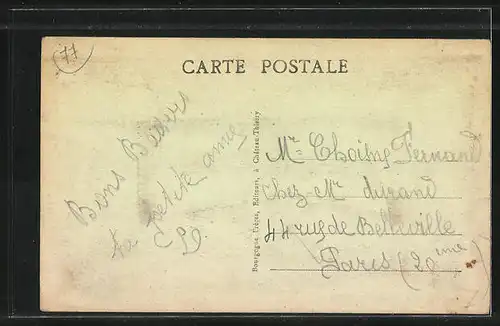 77
CARTE POSTALE
Bons Baisers
ta petite amie
Bourgogne Frères, Editeurs, à Château-Thierry
Mr Fernand
chez Mr durand
44 rue de Belleville
Paris (20ème)